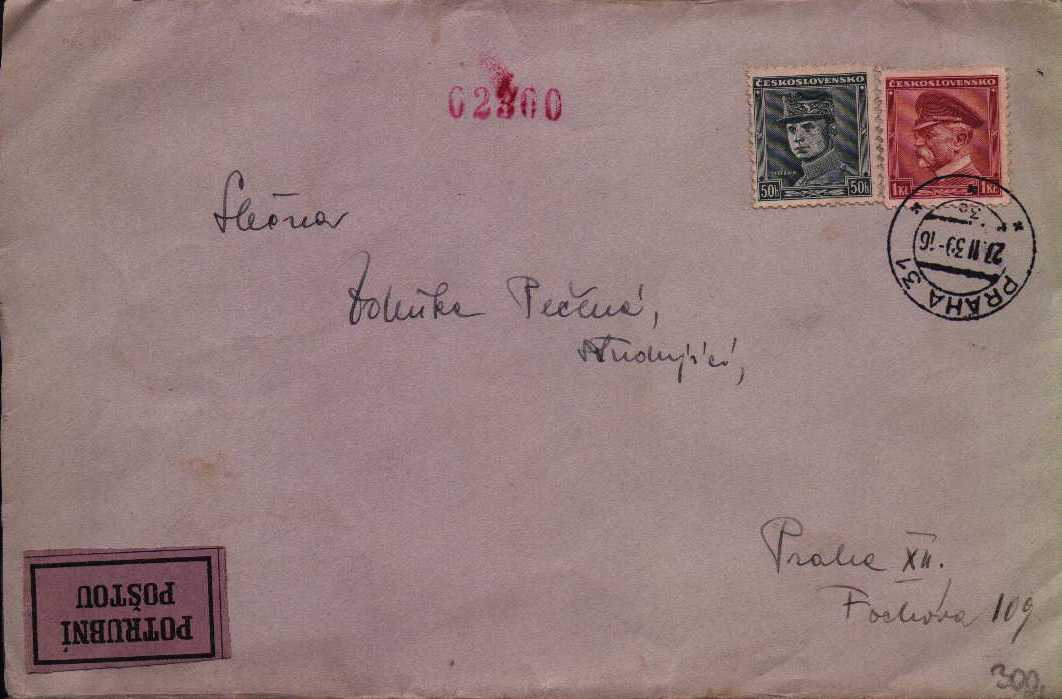 02300
ČESKOSLOVENSKO
50h 50h
ČESKOSLOVENSKO
1Kč 1Kč
PRAHA 31
27.II 39-16
Slečna
Pečená,
studující,
Praha XII.
Fochova 109
POTRUBNÍ
POŠTOU
300.